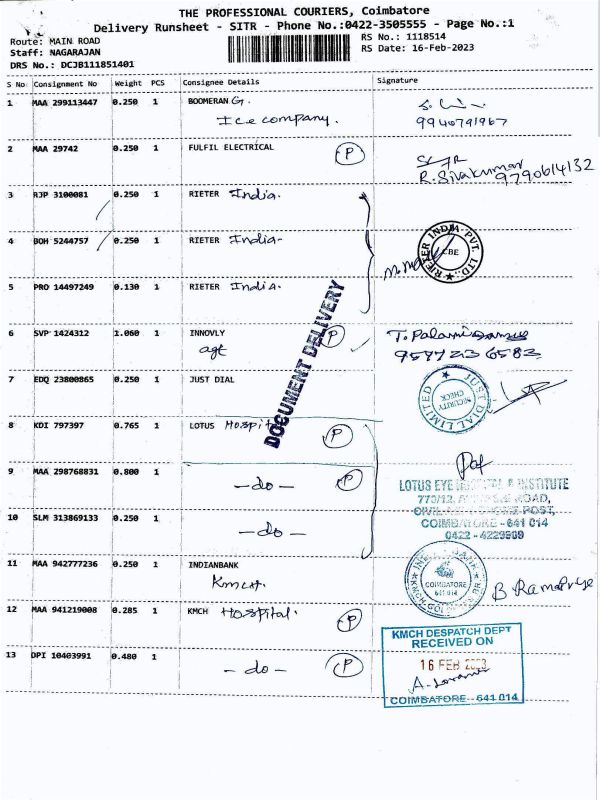 THE PROFESSIONAL COURIERS, Coimbatore
Delivery Runsheet - SITR - Phone No.:0422-3505555 - Page No.:1
Route: MAIN ROAD
RS No.: 1118514
Staff: NAGARAJAN
RS Date: 16-Feb-2023
DRS No.: DCJB111851401
S No Consignment No Weight PCS Consignee Details Signature
1 MAA 299113447 0.250 1 BOOMERANG.
Ice company.
9940791967
2 MAA 29742 0.250 1 FULFIL ELECTRICAL P
R. Sivakumar
9790614132
3 RJP 3100081 0.250 1 RIETER India.
4 BOH 5244757 0.250 1 RIETER India-
RIETER INDIA PVT. LTD.,
CBE
5 PRO 14497249 0.130 1 RIETER India.
DOCUMENT DELIVERY
6 SVP 1424312 1.060 1 INNOVLY P
agt
7 EDQ 23800865 0.250 1 JUST DIAL
JUST DIAL LIMITED
SECURITY CHECK
8 KDI 797397 0.765 1 LOTUS Hospital P
9 MAA 298768831 0.800 1
- do - P
LOTUS EYE HOSPITAL & INSTITUTE
770/12, ROAD,
POST,
COIMBATORE - 641 014
0422 - 4229999
10 SLM 313869133 0.250 1
- do -
11 MAA 942777236 0.250 1 INDIANBANK
KMCH.
INDIAN BANK
COIMBATORE
641 014
B Ramapriya
12 MAA 941219008 0.285 1 KMCH Hospital. P
KMCH DESPATCH DEPT
RECEIVED ON
16 FEB 2023
COIMBATORE - 641 014
13 DPI 10403991 0.480 1
- do - P